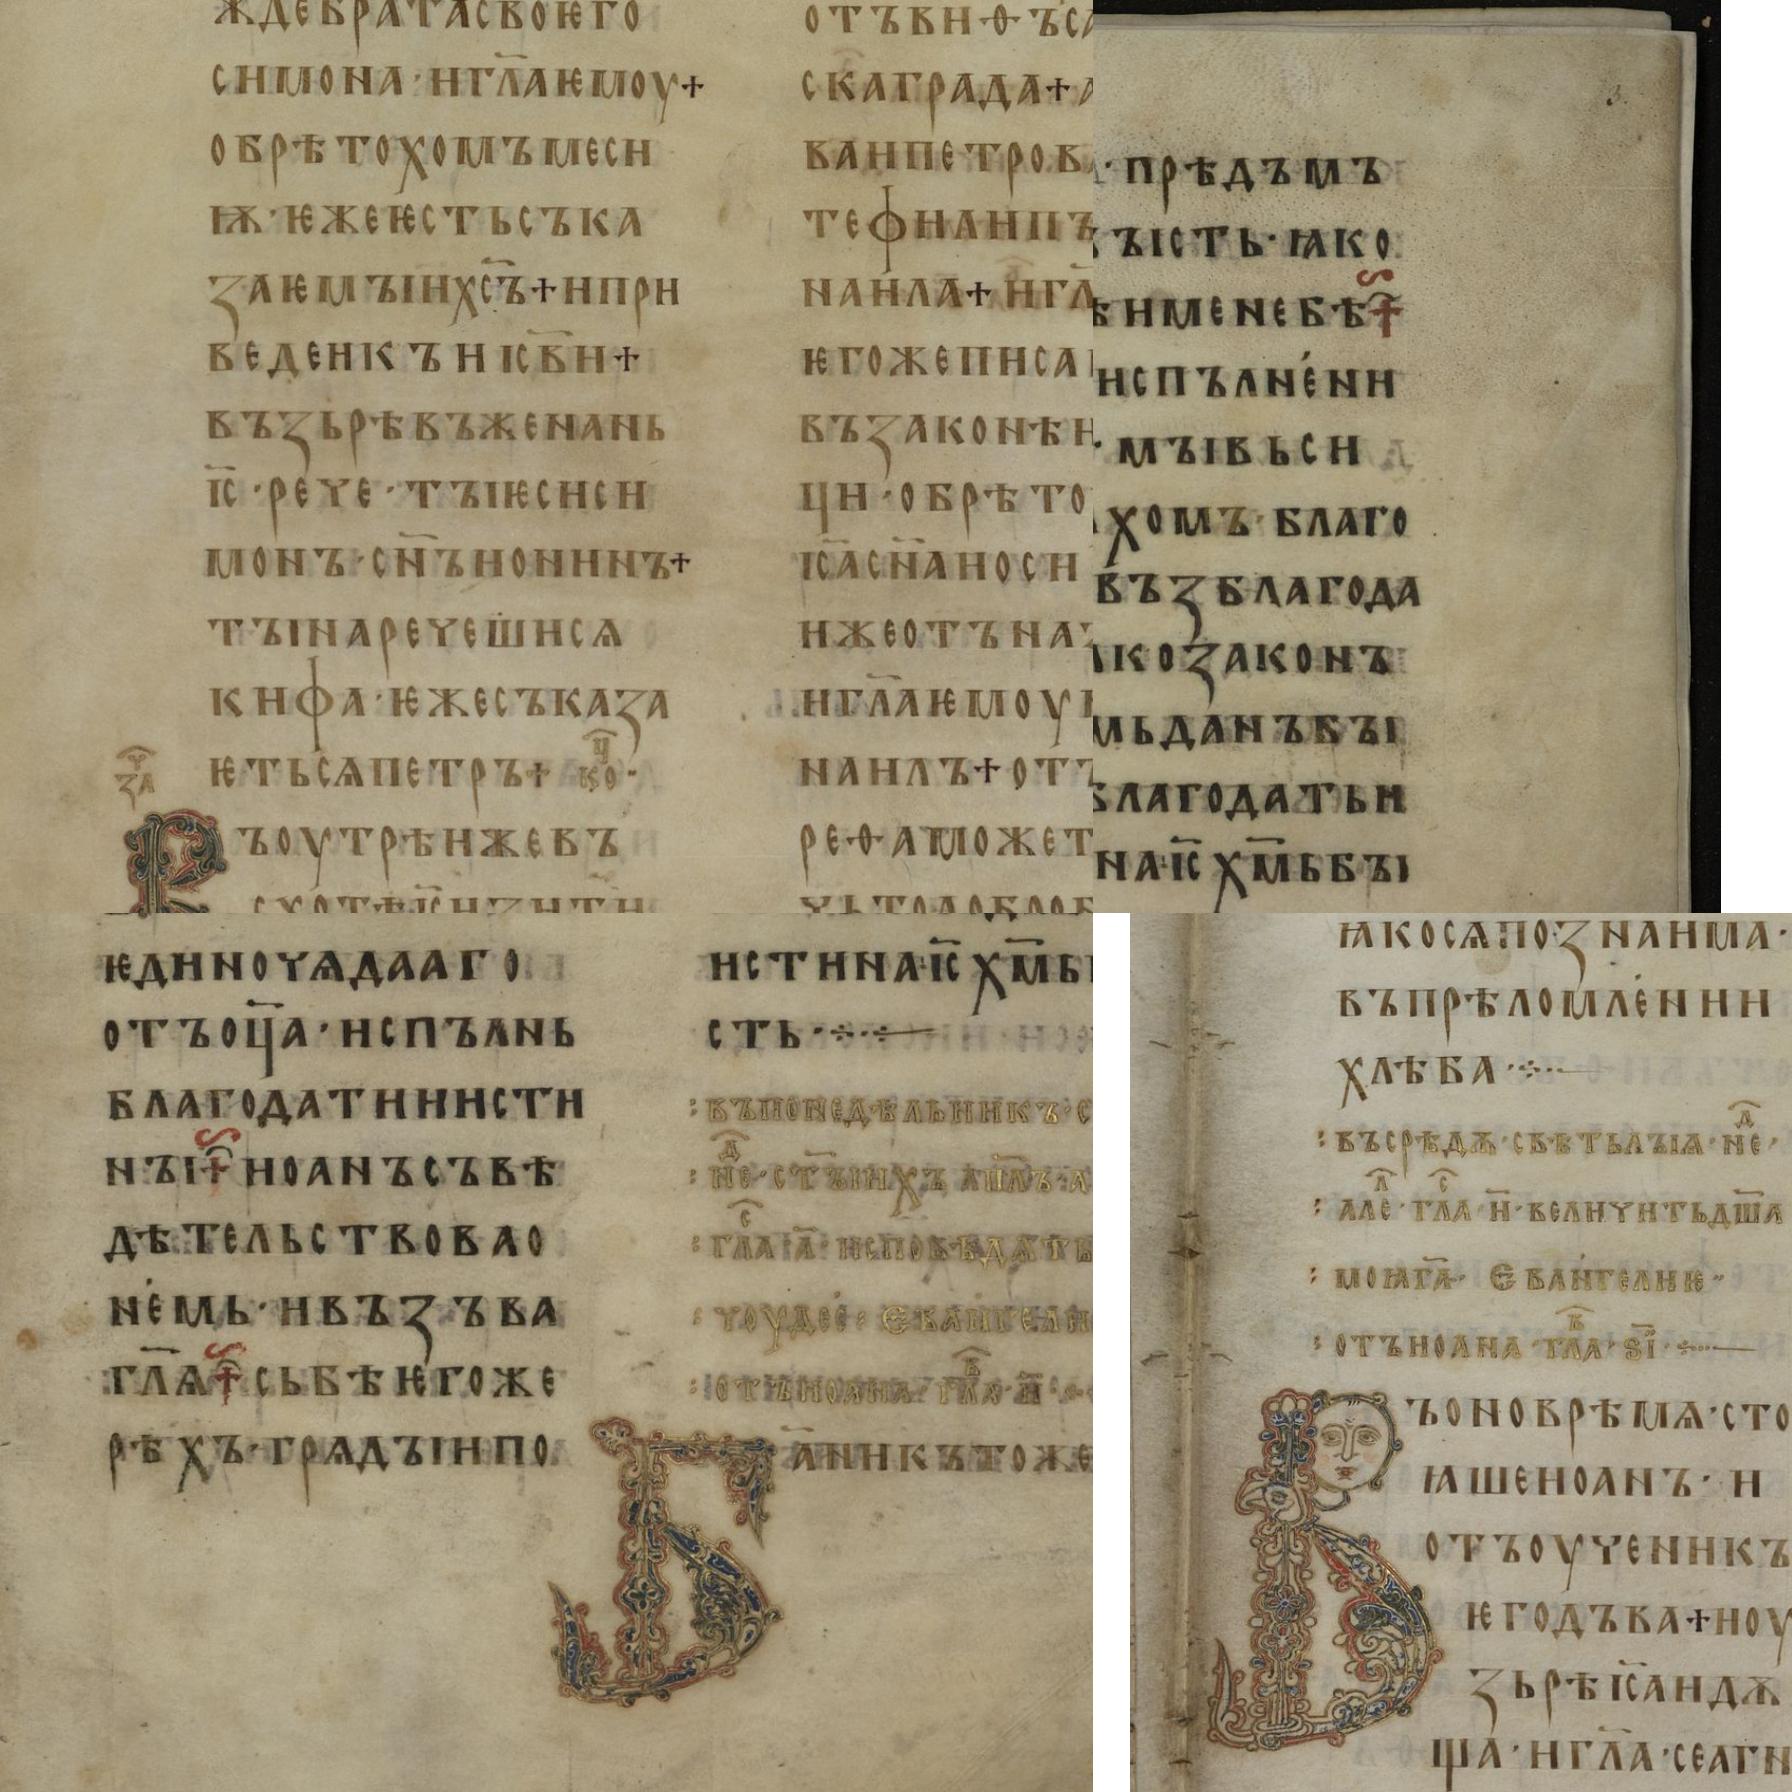 ждебратасвоѥго
симона·игл҃аѥмоу+
обрѣтохомъмеси
ꙗ·ѥжеѥстьсъка
заѥмъıихс҃ъ+ипри
ведеикъиıс҃ви+
възьрѣвъженань
ıс҃·рече·тъıѥсиси
монъ·сн҃ъионинъ+
тъıнаречешисѧ
кифа·ѥжесъказа
ѥтьсѧпетръ+ коц·
зач
ъоутрѣижевъ
схотѣıс҃изити
отъвиѳъса
скаграда+а
ваипетров
тефилипъ
наила+игл҃
ѥгожеписа
възаконѣи
ци·обрѣто
ıс҃асн҃аиоси
ижеотъна
игл҃аѥмоу
наилъ+отъ
реѳаможет
чьтодоброб
3.
·прѣдъмъ
ъıсть·ꙗко
именебѣ+
исплъненн
·мъıвьси
хомъ·благо
възблагода
козаконъ
мьданъбъı
благодатьи
наıс҃хм҃ьбъı
ѥдиночѧдааго
отъоц҃а·испълнь
благодатииисти
нъı+иоанъсъвѣ
дѣтельствовао
немь·ивъзъва
гл҃ѧ+сьбѣѥгоже
рѣхъ·грѧдъıипо
истинаıс҃хм҃ьб
сть·
:въпонедѣльникъ·с
:недⷣ·ст҃ъıихъап҃лъ·
:глаⷭ·а҃·исповѣдѧть
:чоудес·еваньгели
:отъиоана·глаⷡ·н҃·
а҃никътоже
ꙗкосѧпознаима·
въпрѣломлении
хлѣба·
:въсрѣдѫ·свѣтьлъıѧ·неⷣ·
:алеⷧ·глаⷭ·и҃·величитьдш҃а
:моꙗг҃а· евањгелиѥ·
:отъиоана·глаⷡ·ѕı҃·
ъоноврѣмѧ·сто
ꙗшеиоанъ·и
отъоученикъ
ѥгодъва+иоу
зьрѣıс҃аидѫ
ща·игл҃а·сеагн